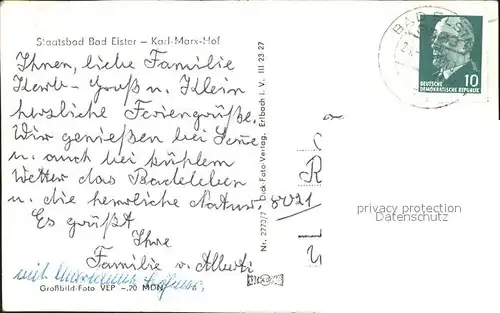 Staatsbad Bad Elster – Karl-Marx-Hof
Ihnen, liebe Familie
Groß u. Klein
herzliche Feriengrüße.
Wir genießen bei Sonne
u. auch bei kühlem
Wetter das Badeleben
u. die herrliche Natur.
Es grüßt
Ihre
Familie v. Alberti
mit
Großbild-Foto VEP –,20 MDN
Nr. 2773/7 Dick-Foto-Verlag, Erlbach i. V. III 23 27
8021
BAD ELST
10
DEUTSCHE
DEMOKRATISCHE REPUBLIK
privacy protection
Datenschutz